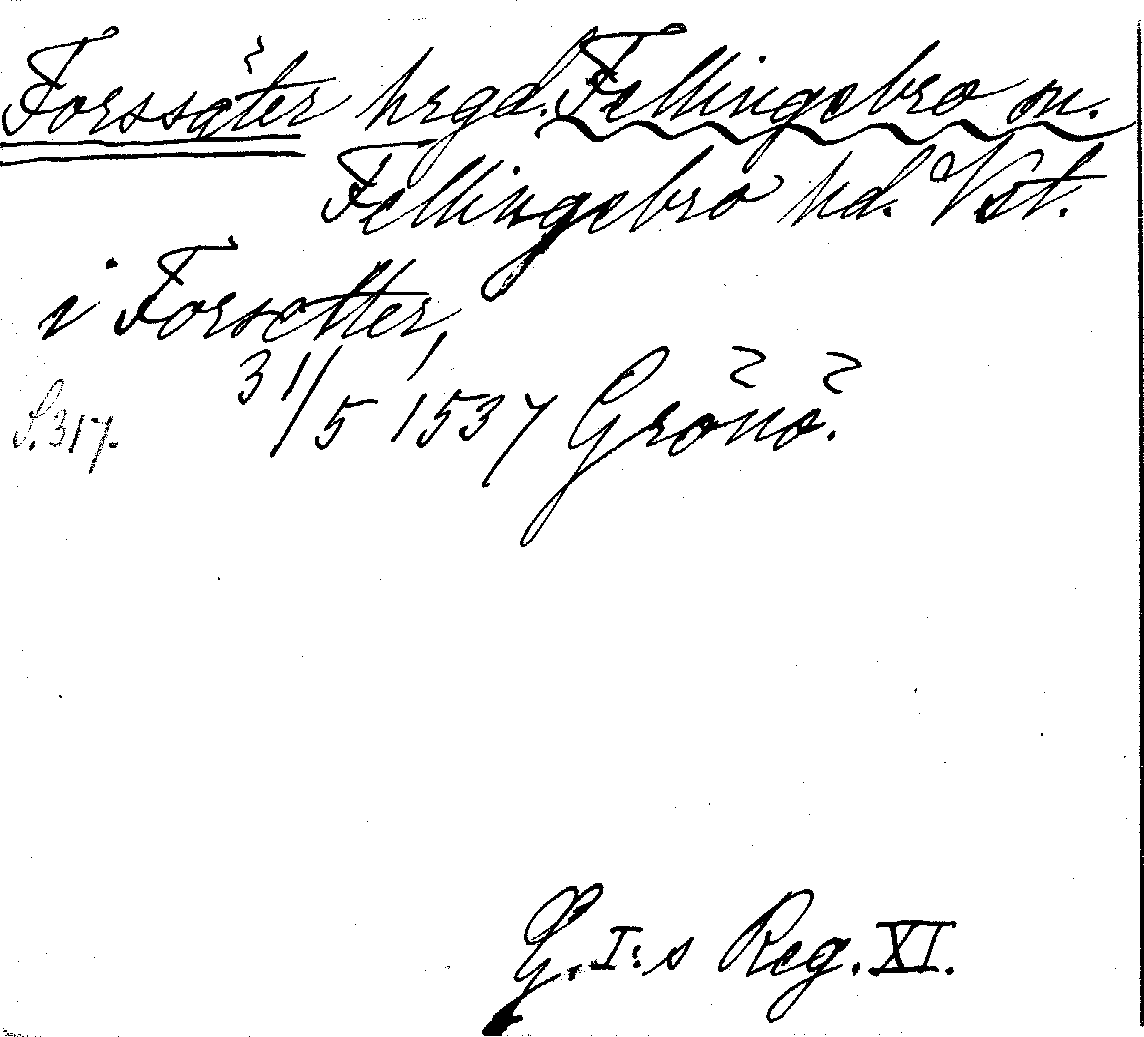 Forssäter hrgd. Fellingsbro sn.
Fellingsbro hd. Vst.
i Forsetter,
31/5 1537 Grönö.
S. 317.
G. I:s Reg. XI.